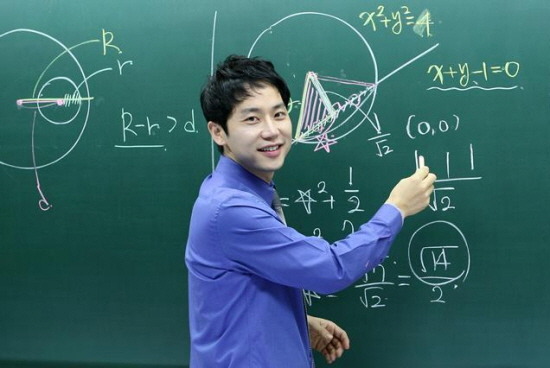 R
r
R-r>d
d
x²+y²=4
x+y-1=0
1
√2
(0,0)
1 1 1
√2
=☆²+ 1/2
√2
= √14/2